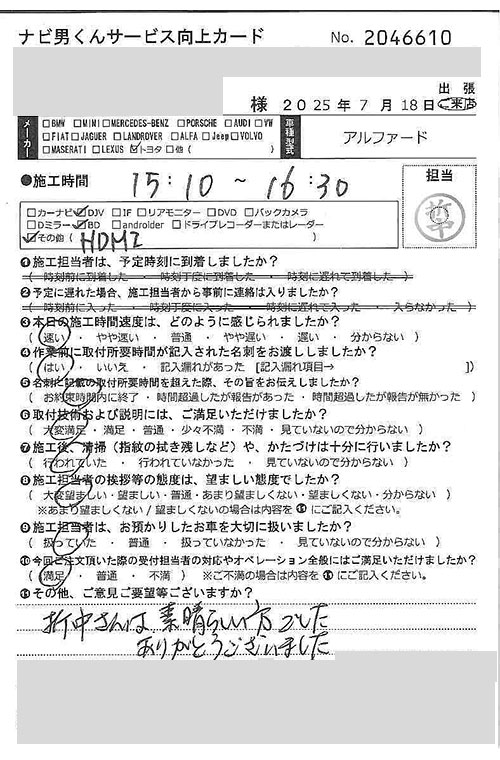 ナビ男くんサービス向上カード No. 2046610
出 張
様 2025年 7月 18日 ご来店
メーカー □BMW □MINI □MERCEDES-BENZ □PORSCHE □AUDI □VW
□FIAT □JAGUER □LANDROVER □ALFA □Jeep □VOLVO
□MASERATI □LEXUS ☑トヨタ □他 ( )
車種型式 アルファード
●施工時間 15:10 ~ 16:30
担当
□カーナビ ☑DJV □IF □リアモニター □DVD □バックカメラ
□Dミラー ☑BD □androider □ドライブレコーダーまたはレーダー
☑その他 ( HDMI )
❶施工担当者は、予定時刻に到着しましたか?
( 時刻前に到着した ・ 時刻丁度に到着した ・ 時刻に遅れて到着した )
❷予定に遅れた場合、施工担当者から事前に連絡は入りましたか?
( 時刻前に入った ・ 時刻丁度に入った ・ 時刻に遅れて入った ・ 入らなかった )
❸本日の施工時間速度は、どのように感じられましたか?
( 速い ・ やや速い ・ 普通 ・ やや遅い ・ 遅い ・ 分からない )
❹作業前に取付所要時間が記入された名刺をお渡ししましたか?
( はい ・ いいえ ・ 記入漏れがあった [記入漏れ項目→ ])
❺名刺に記載の取付所要時間を超えた際、その旨をお伝えしましたか?
( お約束時間内に終了 ・ 時間超過したが報告があった ・ 時間超過したが報告が無かった )
❻取付技術および説明には、ご満足いただけましたか?
( 大変満足 ・ 満足 ・ 普通 ・ 少々不満 ・ 不満 ・ 見ていないので分からない )
❼施工後、清掃(指紋の拭き残しなど)や、かたづけは十分に行いましたか?
( 行われていた ・ 行われていなかった ・ 見ていないので分からない )
❽施工担当者の挨拶等の態度は、望ましい態度でしたか?
( 大変望ましい ・ 望ましい ・ 普通 ・ あまり望ましくない ・ 望ましくない ・ 分からない )
※あまり望ましくない / 望ましくないの場合は内容を⓫にご記入ください。
❾施工担当者は、お預かりしたお車を大切に扱いましたか?
( 扱っていた ・ 普通 ・ 扱っていなかった ・ 見ていないので分からない )
❿今回ご注文頂いた際の受付担当者の対応やオペレーション全般にはご満足いただけましたか?
( 満足 ・ 普通 ・ 不満 ) ※ご不満の場合は内容を⓫にご記入ください。
⓫その他、ご意見ご要望等ございますか?
折中さんは 素晴らしい方でした
ありがとうございました